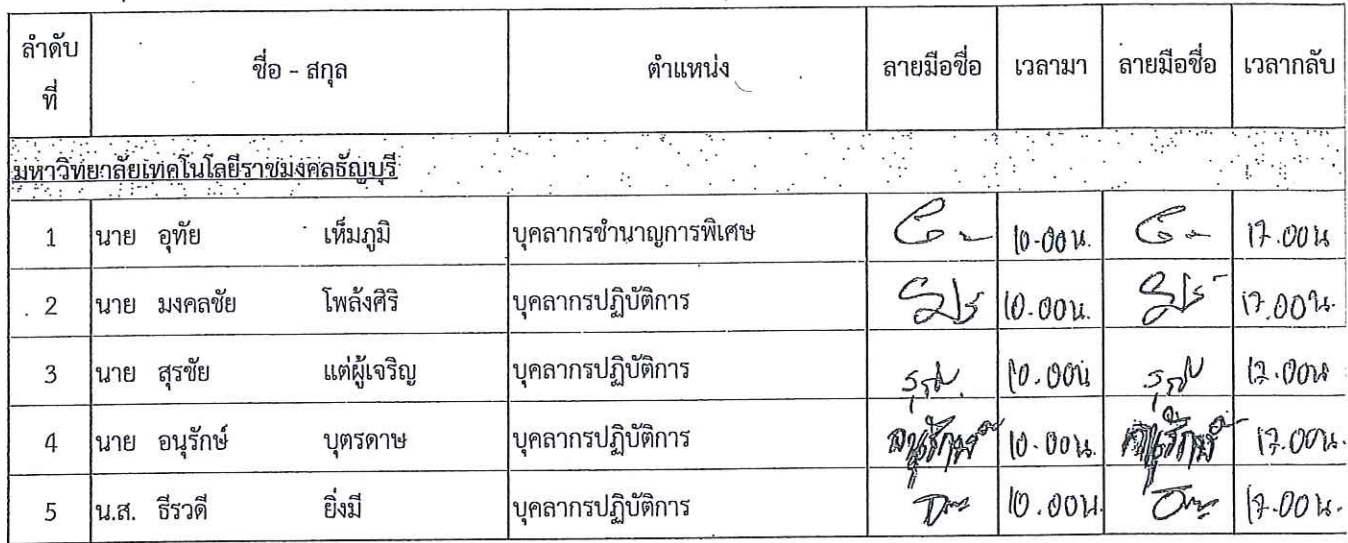 ลำดับที่ ชื่อ - สกุล ตำแหน่ง ลายมือชื่อ เวลามา ลายมือชื่อ เวลากลับ
มหาวิทยาลัยเทคโนโลยีราชมงคลธัญบุรี
1 นาย อุทัย เห็มภูมิ บุคลากรชำนาญการพิเศษ 10.00 น. 17.00 น
2 นาย มงคลชัย โพล้งศิริ บุคลากรปฏิบัติการ 10.00 น. 17.00 น.
3 นาย สุรชัย แต่ผู้เจริญ บุคลากรปฏิบัติการ 10.00 น 17.00 น
4 นาย อนุรักษ์ บุตรดาษ บุคลากรปฏิบัติการ อนุรักษ์ 10.00 น. อนุรักษ์ 17.00 น.
5 น.ส. ธีรวดี ยิ่งมี บุคลากรปฏิบัติการ 10.00 น. 17.00 น.